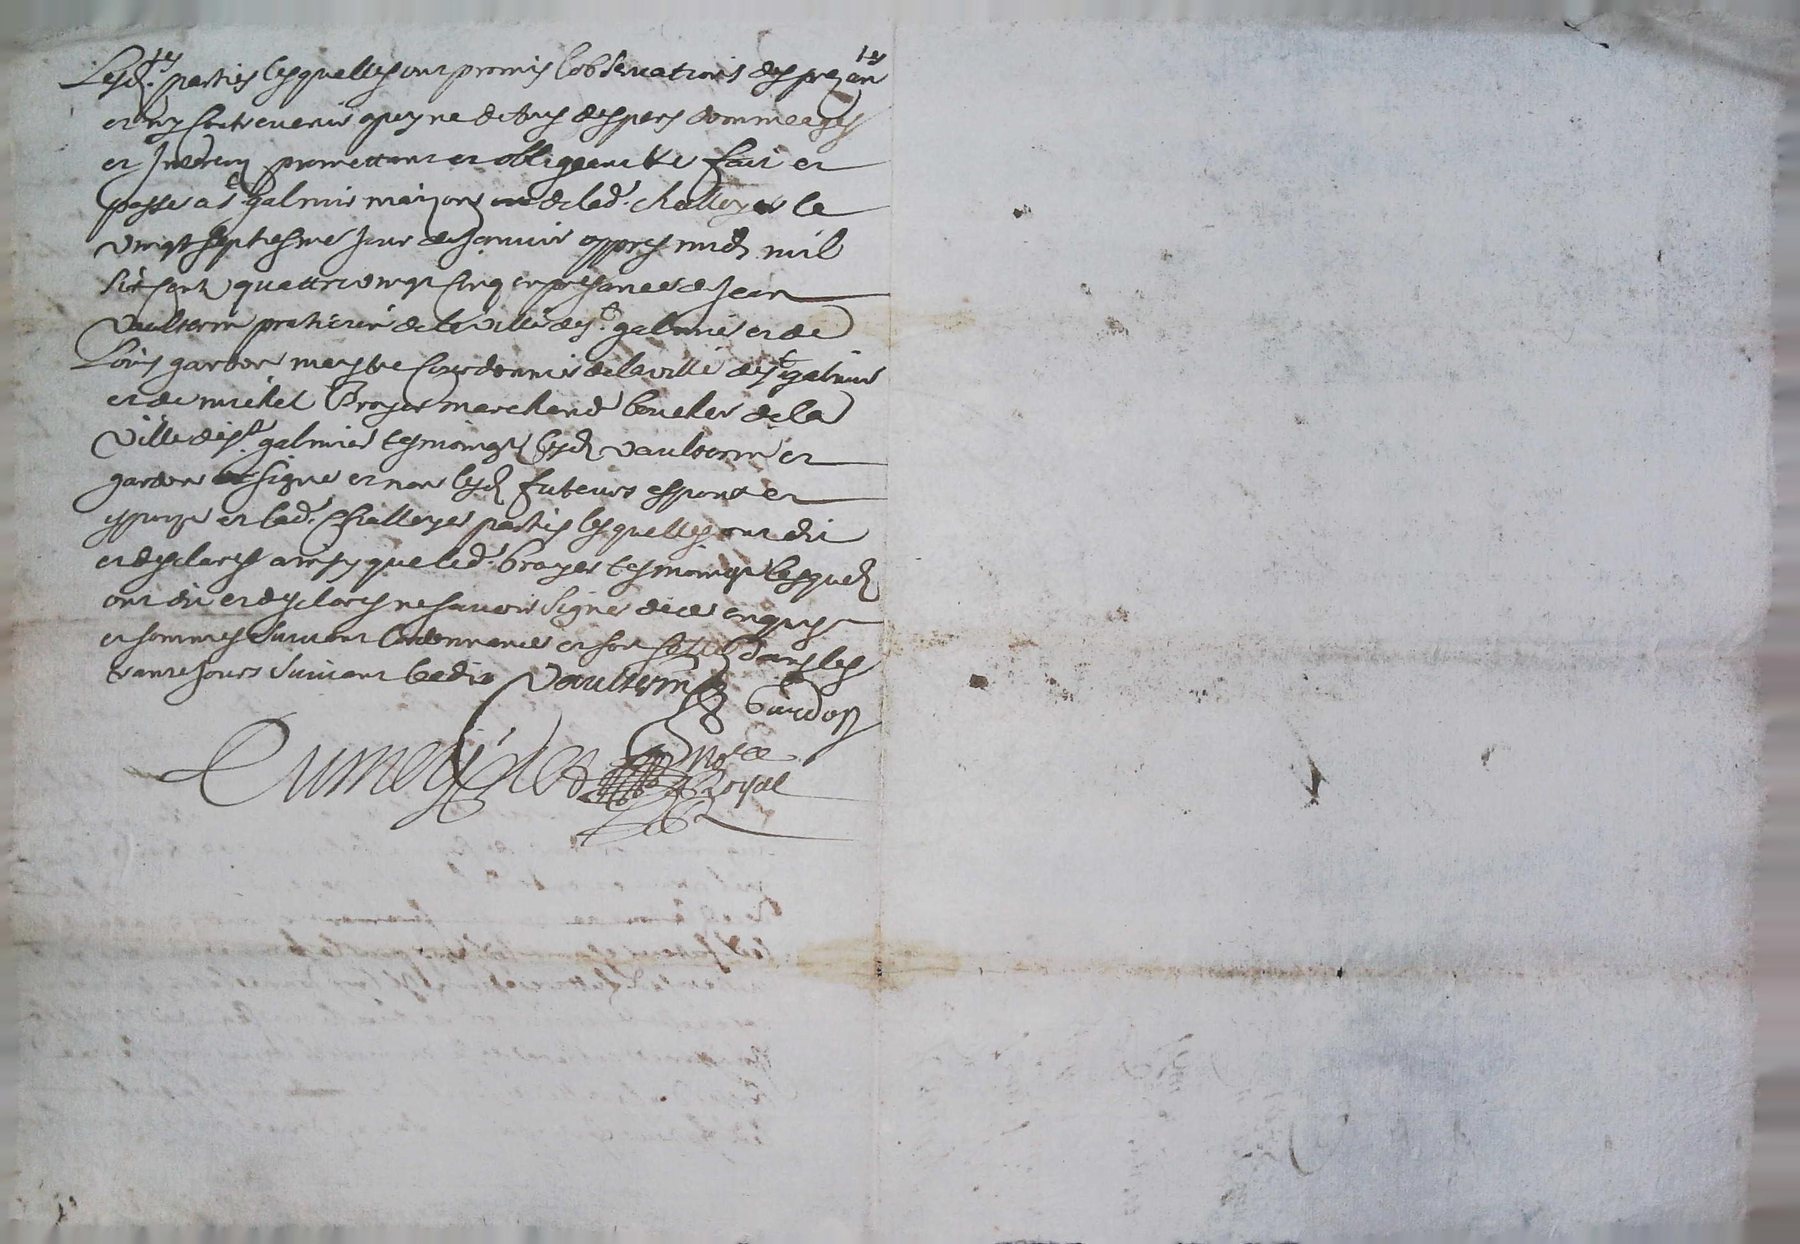 Lesd.tes parties lesquelles ont promis lobservations des prezantes
et ny contrevenir a peyne de tous despens dommeages
et Interetz promettant et obligeant &c fait et
passe a st galmier maizon de lad. challeyer le
vingt septiesme Jour de Janvier appres midy mil
six centz quattre vingt cinq en presance de Jean
Vaultorin praticien de la ville de st galmier et de
Louis gardon maystre cordonnier de la ville de st galmier
et de michel Broyer marchand boucher de la
Ville de st galmier tesmoingz lesd vaultorin et
gardon signe et non lesd futeurs espoux et
espouze et lad. Challeyer parties lesquelles ont dit
et desclares ainsy que led. broyer tesmoingt lesquelz
ont dit et desclares ne savoir signer de ce enquys
et sommes suivant lordonnance et soit selle dans les
trante jours suivant ledit Vaultorin
Gardon
No.re
Royal